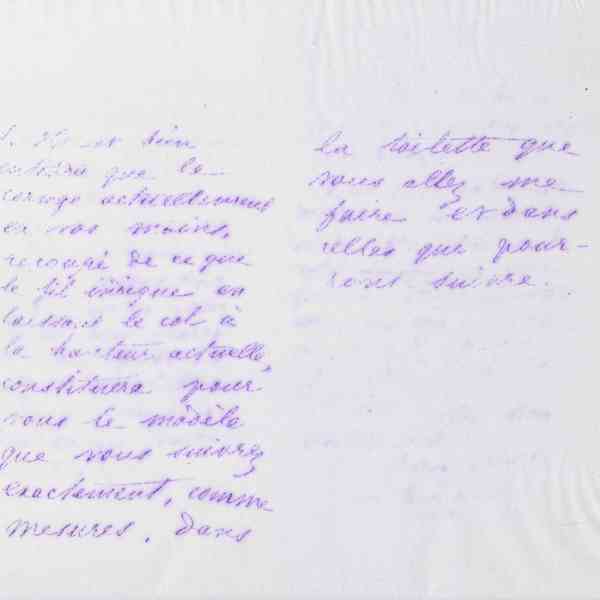 est bien
entendu que le
corsage actuellement
en vos mains,
recoupé de ce que
le fil indique en
laissant le col à
la hauteur actuelle,
constituera pour
vous le modèle
que vous suivrez
exactement, comme
mesures, dans
la toilette que
vous allez me
faire et dans
celles qui pour-
ront suivre.